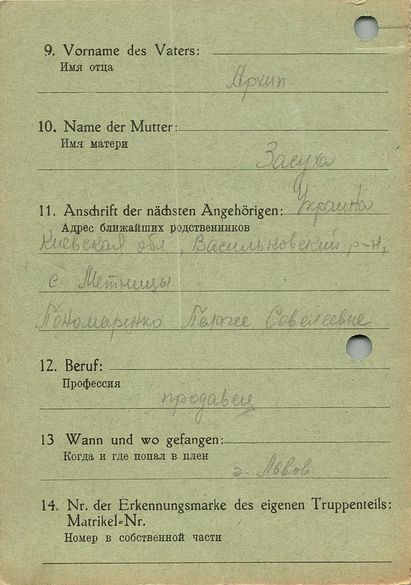 9. Vorname des Vaters:
Имя отца
Архип
10. Name der Mutter:
Имя матери
Засуха
11. Anschrift der nächsten Angehörigen: Украина
Адрес ближайших родственников
Киевская обл, Васильковский р-н,
с Метницы
Пономаренко Пелагее Совелеевне
12. Beruf:
Профессия
продавец
13 Wann und wo gefangen:
Когда и где попал в плен
г. Львов
14. Nr. der Erkennungsmarke des eigenen Truppenteils:
Matrikel-Nr.
Номер в собственной части